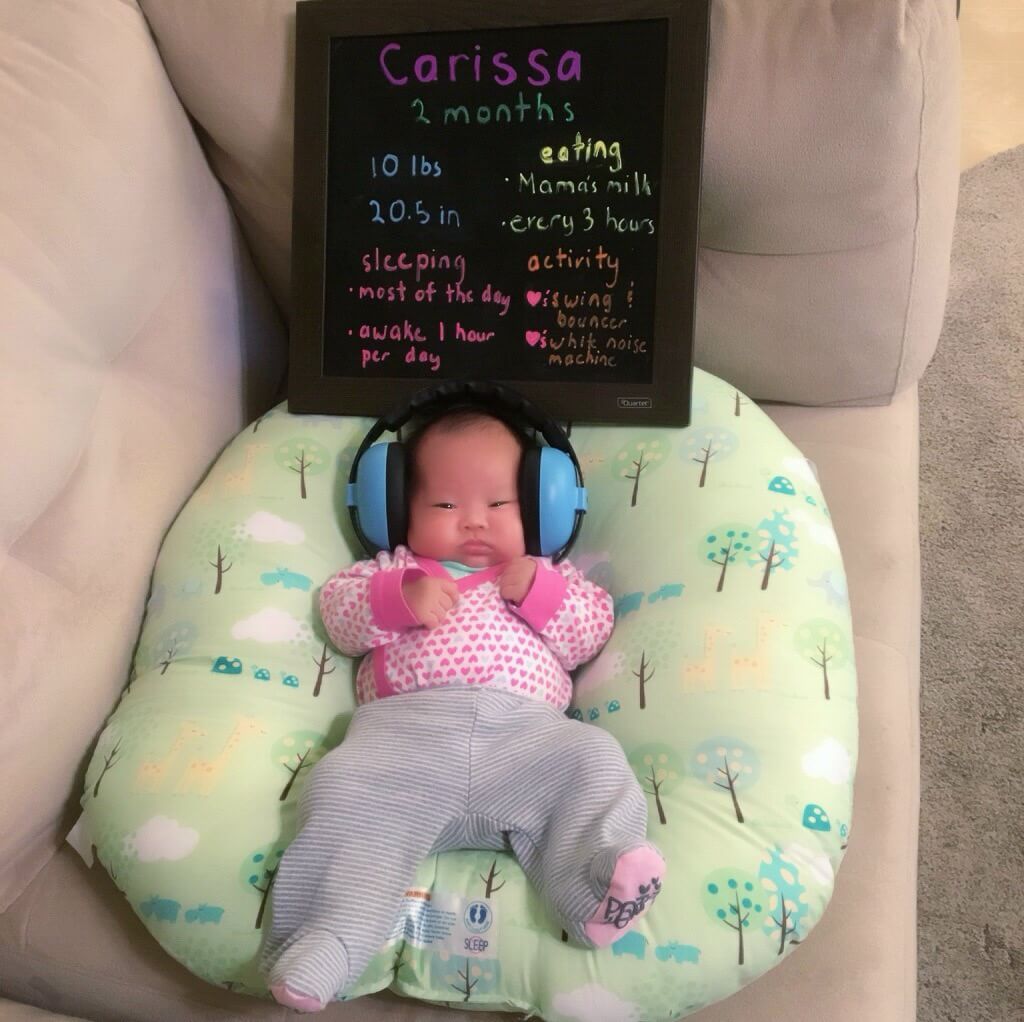 Carissa
2 months
10 lbs
20.5 in
eating
· Mama's milk
· every 3 hours
sleeping
· most of the day
· awake 1 hour
per day
activity
♥'s swing &
bouncer
♥'s white noise
machine
Quartet
SLEEP